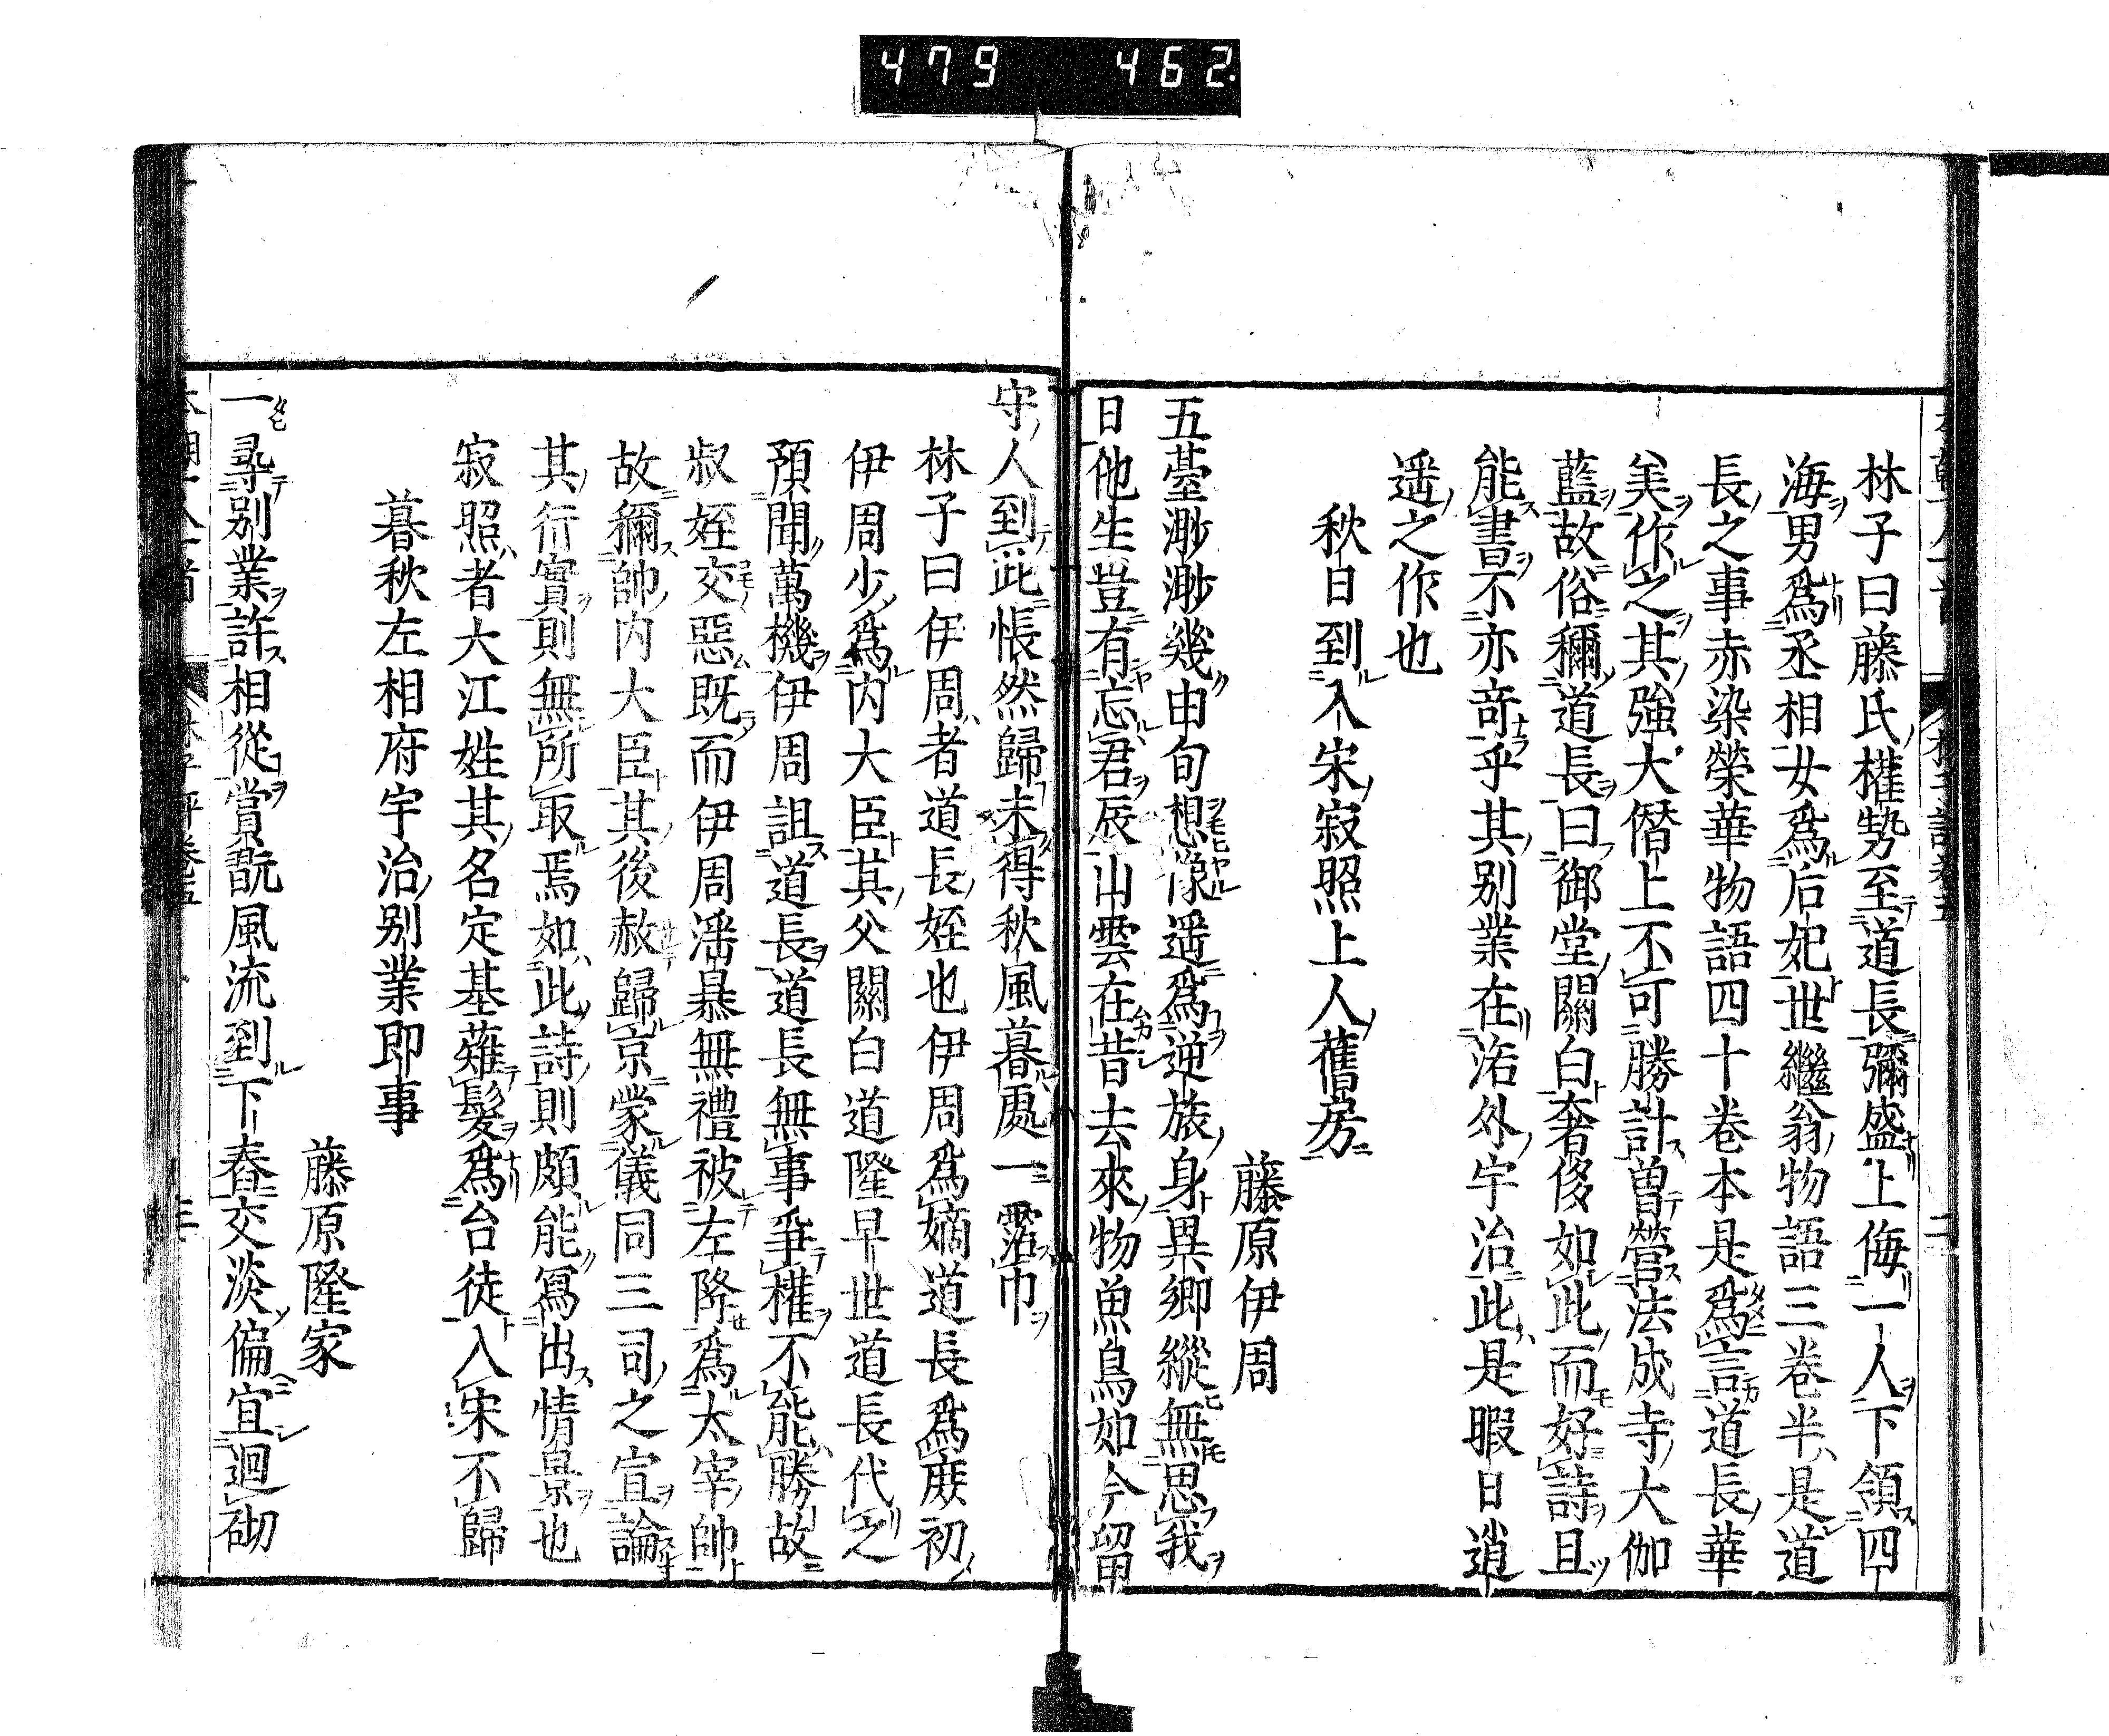 479 462
林子曰藤氏權勢至道長彌盛上侮一人下領四
海男爲丞相女爲后妃世繼翁物語三卷半是道
長之事赤染榮華物語四十卷本是爲言道長華
美作之其強大僭上不可勝計曽營法成寺大伽
藍故俗稱道長曰御堂關白奢侈如此而好詩且
能書不亦竒乎其别業在洛外宇治此是暇日逍
遥之作也
秋日到入宋寂照上人舊房
藤原伊周
五臺渺渺幾由旬想像遥爲逆旅身異郷縱無思我
日他生豈有忘君辰山雲在昔去來物魚鳥如今留
守人到此悵然歸未得秋風暮處一霑巾
林子曰伊周者道長姪也伊周爲嫡道長爲庶初
伊周少爲内大臣其父關白道隆早世道長代之
預聞萬機伊周詛道長道長無事爭權不能勝故
叔姪交惡既而伊周滛暴無禮被左降爲太宰帥
故稱帥内大臣其後赦歸京蒙儀同三司之宣論
其行實則無所取焉如此詩則頗能寫出情景也
寂照者大江姓其名定基薙髮爲台徒入宋不歸
暮秋左相府宇治别業即事
藤原隆家
一尋别業許相從賞翫風流到下舂交淡偏宜迴砌